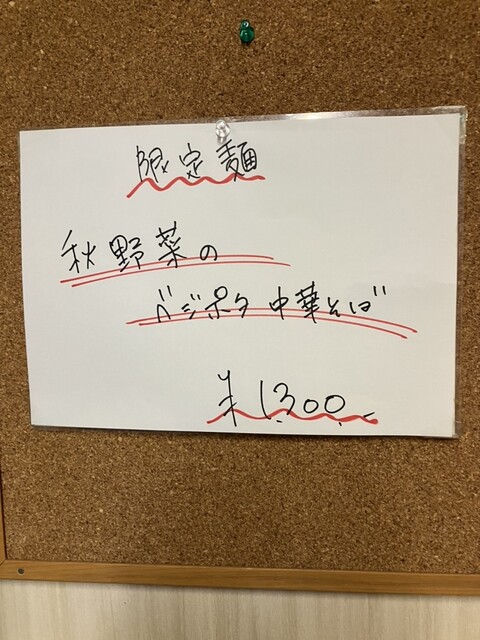 限定麺
秋野菜の
ベジポタ中華そば
¥1,300,-